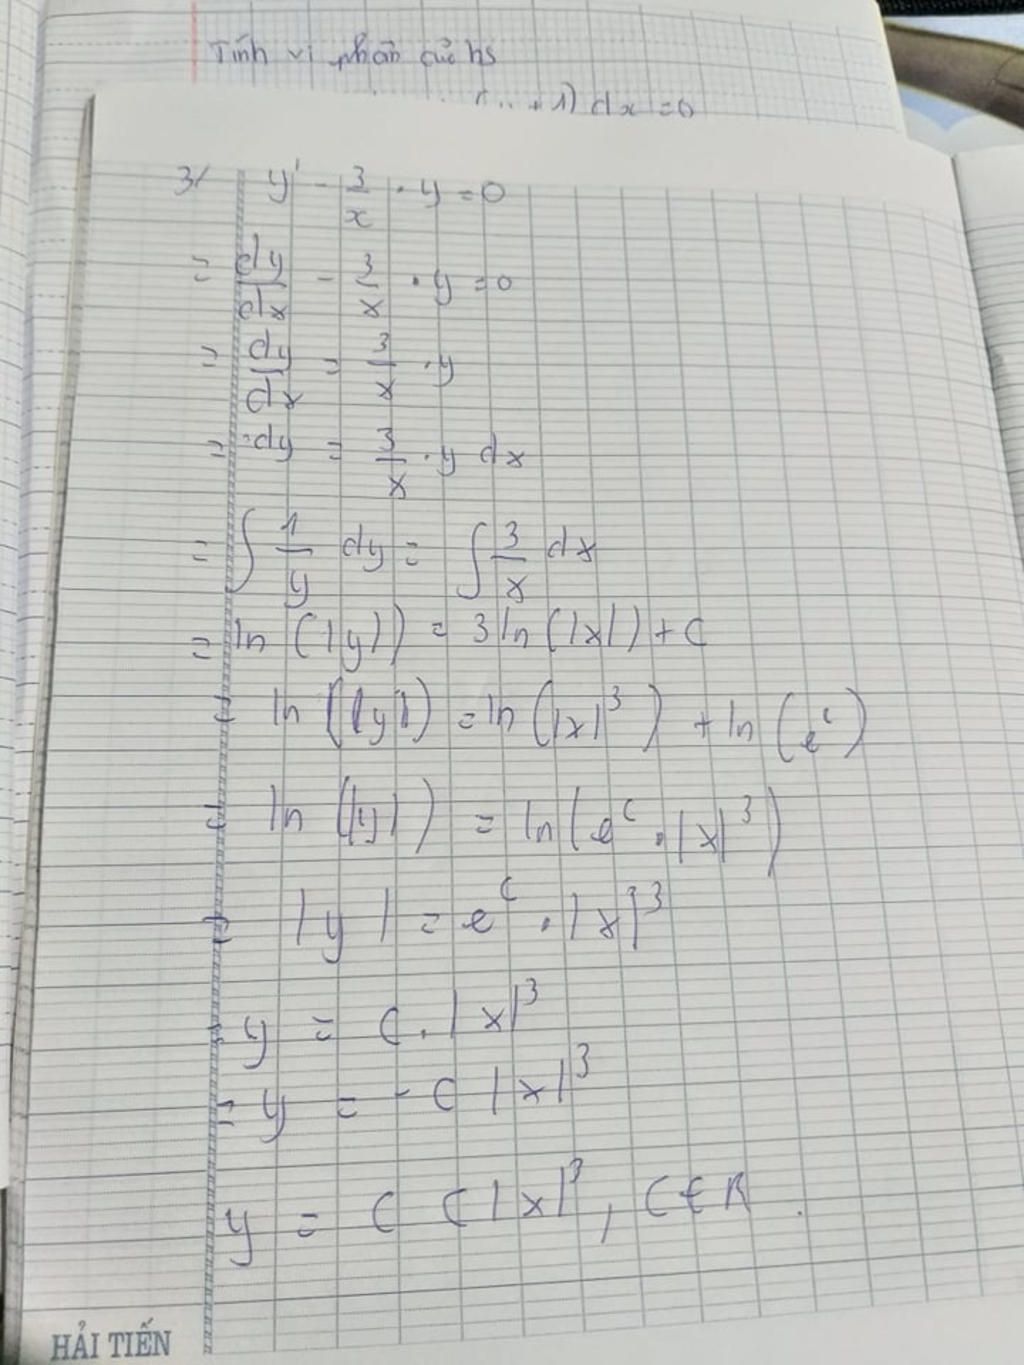 Tính vi phân của hs
+ 1) dx = 0
3/ y' - 3/x . y = 0
= dy/dx - 3/x . y = 0
= dy/dx = 3/x . y
= dy = 3/x . y dx
= ∫ 1/y dy = ∫ 3/x dx
= ln (|y|) = 3 ln (|x|) + C
= ln (|y|) = ln (|x|³) + ln (e^c)
= ln (|y|) = ln (e^c . |x|³)
= |y| = e^c . |x|³
y = C . |x|³
= y = - C |x|³
y = C C |x|³, C ∈ R.
HẢI TIẾN